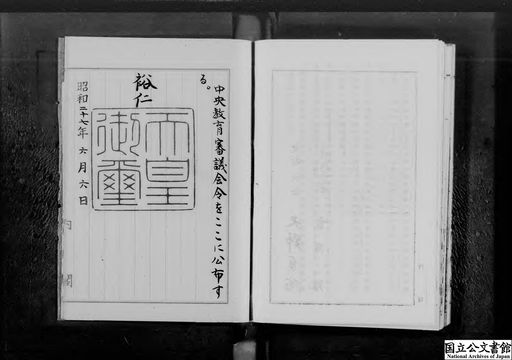 中央教育審議会令をここに公布す
る。
裕仁
天皇
御璽
昭和二十七年六月六日
内閣
国立公文書館
National Archives of Japan